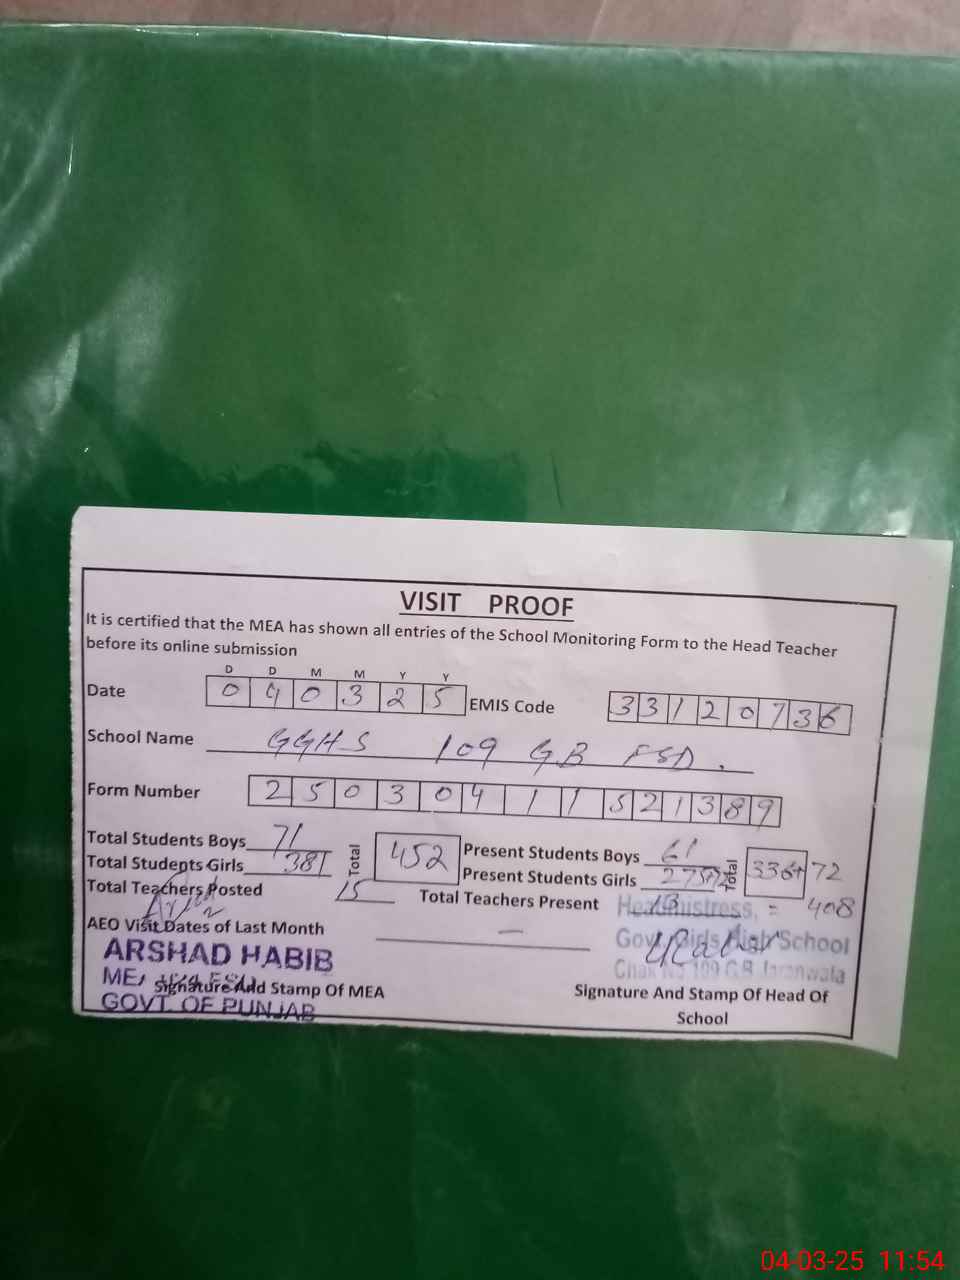 VISIT PROOF
It is certified that the MEA has shown all entries of the School Monitoring Form to the Head Teacher
before its online submission
D D M M Y Y
Date 0 4 0 3 2 5 EMIS Code 3 3 1 2 0 7 3 6
School Name GGHS 109 GB FSD.
Form Number 2 5 0 3 0 4 1 1 5 2 1 3 8 9
Total Students Boys 71 Total 452 Present Students Boys 61 Total 336+72
Total Students Girls 381 Present Students Girls
Total Teachers Posted 15 Total Teachers Present = 408
AEO Visit Dates of Last Month —
Headmistress,
Govt. Girls High School
Chak No 109 G.B. Jaranwala
ARSHAD HABIB
GOVT. OF PUNJAB
Signature And Stamp Of MEA
Signature And Stamp Of Head Of
School
04-03-25 11:54